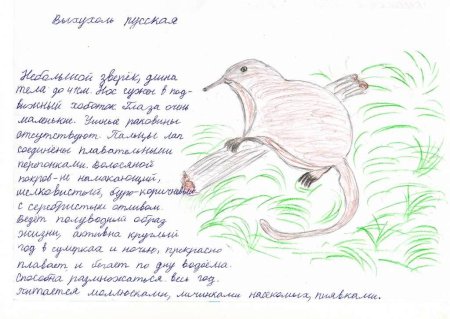 Выхухоль русская
Небольшой зверёк, длина
тела до
Нос сужен в под-
вижный хоботок. Глаза очень
маленькие. Ушные раковины
отсутствуют. Пальцы лап
соединены плавательными
перепонками. Волосяной
покров-не намокающий,
шелковистый, буро-коричневый
с серебристым отливом.
Ведёт полуводный образ
жизни, активна круглый
год в сумерках и ночью, прекрасно
плавает и бегает по дну водоёма.
Способна размножаться весь год.
Питается моллюсками, личинками насекомых, пиявками.